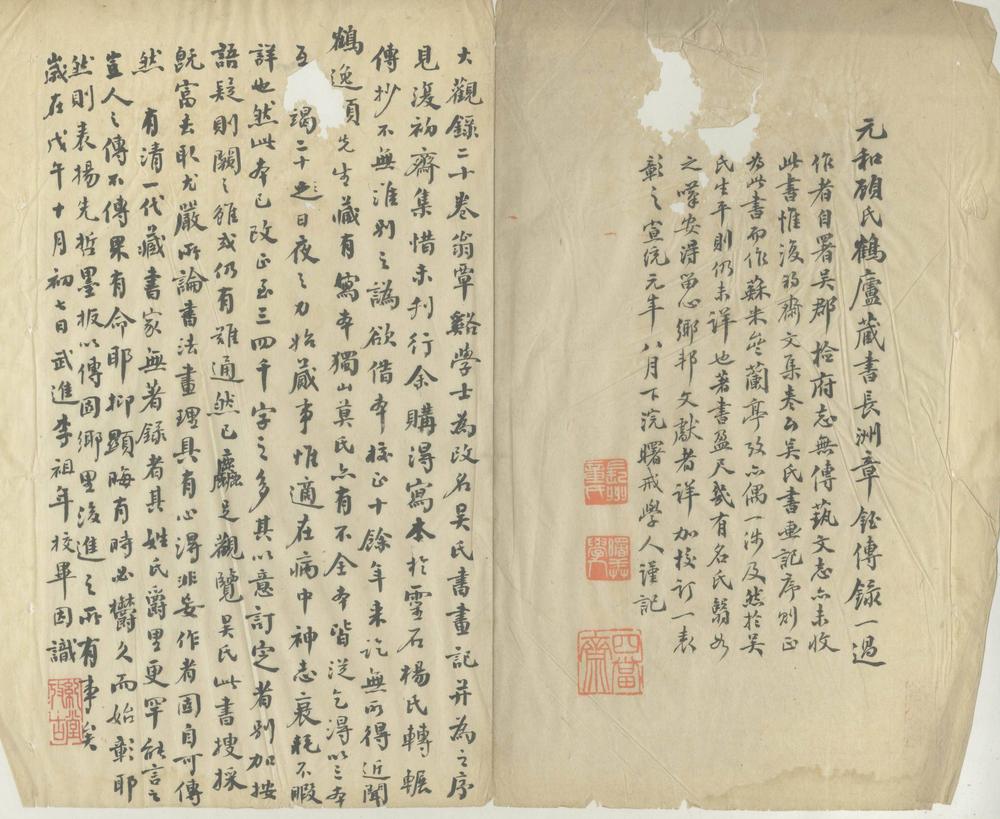 元和顧氏鶴廬藏書長洲章鈺傳錄一過
作者自署吳郡撿府志無傳藝文志亦未收
此書惟復初齋文集卷六吳氏書畫記序則正
為此書而作蘇米齋蘭亭攷亦偶一涉及然於吳
氏生平則仍未詳也著書盈尺幾有名氏翳如
之嘆安得留心鄉邦文獻者詳加校訂一表
彰之宣統元年八月下浣曙戒學人謹記
長洲章氏
曙戒學
四當齋
大觀錄二十卷翁覃谿學士為改名吳氏書畫記并為之序
見復初齋集惜未刊行余購得寫本於靈石楊氏轉輾
傳抄不無淮別之譌欲借本校正十餘年來訖無所得近聞
鶴逸顧先生藏有寫本獨山莫氏亦有不全本皆逆乞得以三本
互竭二十日夜之力始蕆事惟適在病中神志衰耗不暇
詳也然此本已改正至三四千字之多其以意訂定者別加按
語疑則闕之雖或仍有難通然已麤足觀覽吳氏此書搜採
既富去取尤嚴所論書法畫理具有心得非妄作者固自可傳
然有清一代藏書家無著錄者其姓氏爵里更罕能言之
豈人之傳不傳果有命耶抑顯晦有時必鬱久而始彰耶
然則表揚先哲墨板以傳固鄉里後進之所有事矣
歲在戊午十月初七日武進李祖年校畢因識